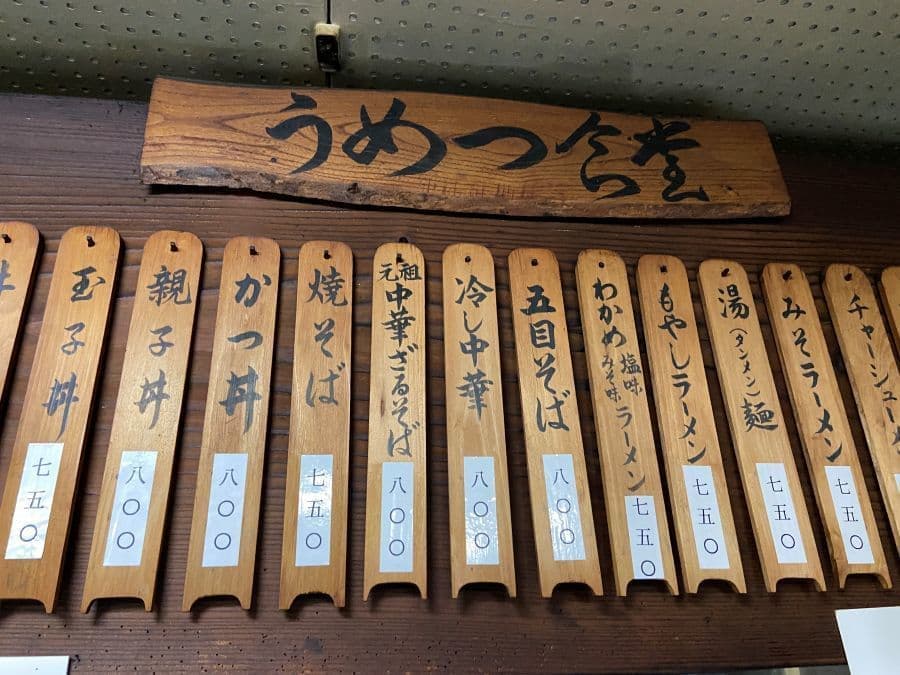 うめつ食堂
チャーシュー
みそラーメン
七五〇
湯(タンメン)麺
七五〇
もやしラーメン
七五〇
わかめ塩味みそ味ラーメン
七五〇
五目そば
八〇〇
冷し中華
八〇〇
元祖中華ざるそば
八〇〇
焼そば
七五〇
かつ丼
八〇〇
親子丼
八〇〇
玉子丼
七五〇
丼